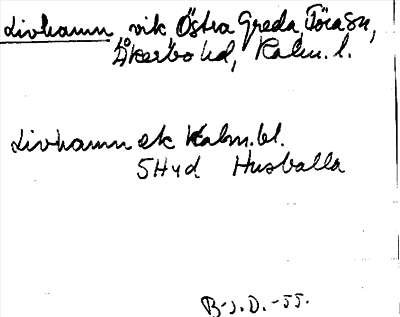 Livhamn, vik, Östra Greda, Föra sn,
Åkerbo hd, Kalm. l.
Livhamn ek Kalm. bl.
5H4d Husvalla
B-J.D. -55.